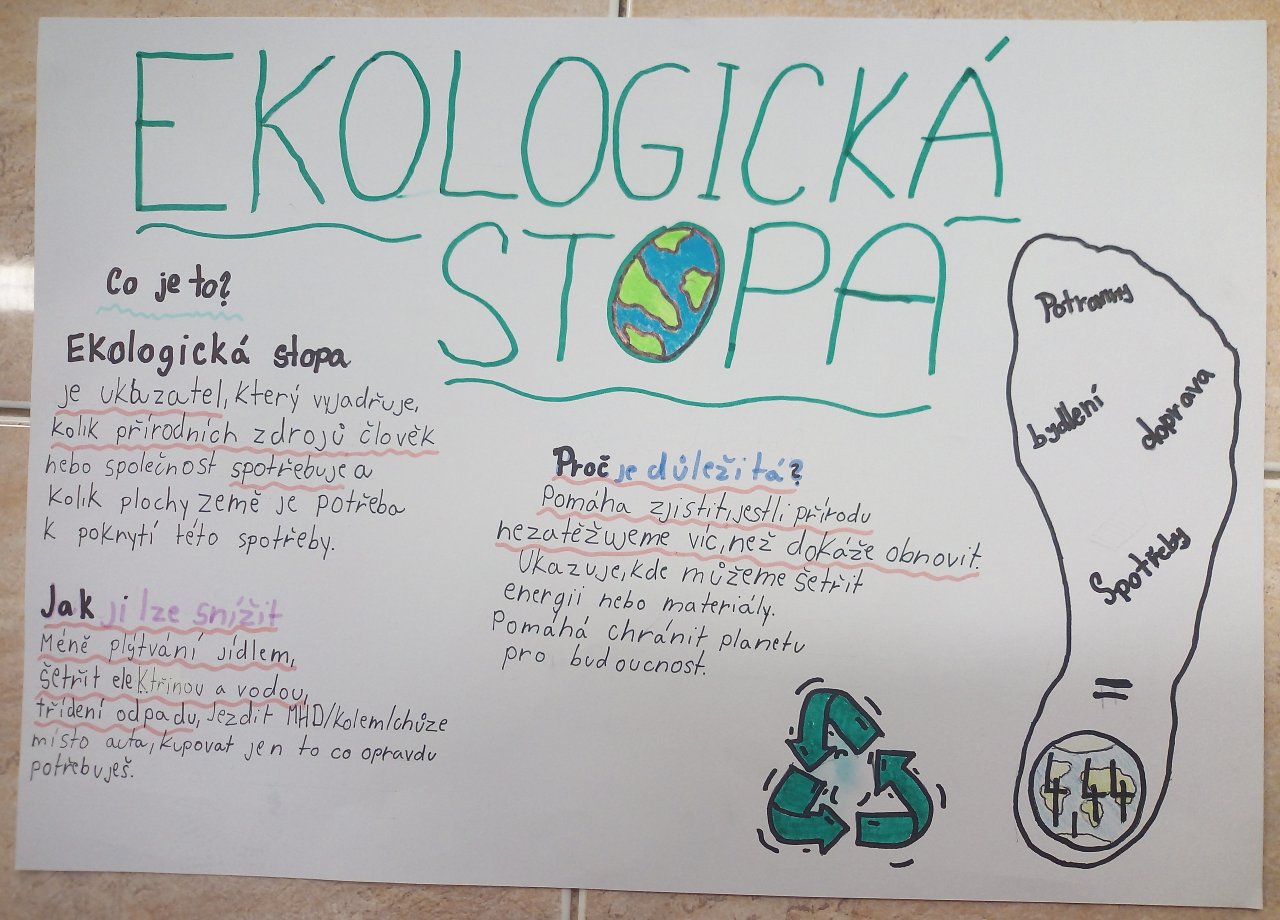 EKOLOGICKÁ
STOPA
Co je to?
EKologická stopa
je ukazatel, který vyjadřuje,
kolik přírodních zdrojů člověk
nebo společnost spotřebuje a
kolik plochy země je potřeba
k pokrytí této spotřeby.
Jak ji lze snížit
Méně plýtvání jídlem,
šetřit elektřinou a vodou,
třídení odpadu, Jezdit MHD/kolem/chůze
místo auta, kupovat jen to co opravdu
potřebuješ.
Proč je důležitá?
Pomáha zjistit, jestli přírodu
nezatěžujeme víc, než dokáže obnovit.
Ukazuje, kde můžeme šetřit
energii nebo materiály.
Pomáhá chránit planetu
pro budoucnost.
Potraviny
bydlení
doprava
Spotřeby
=
4,44